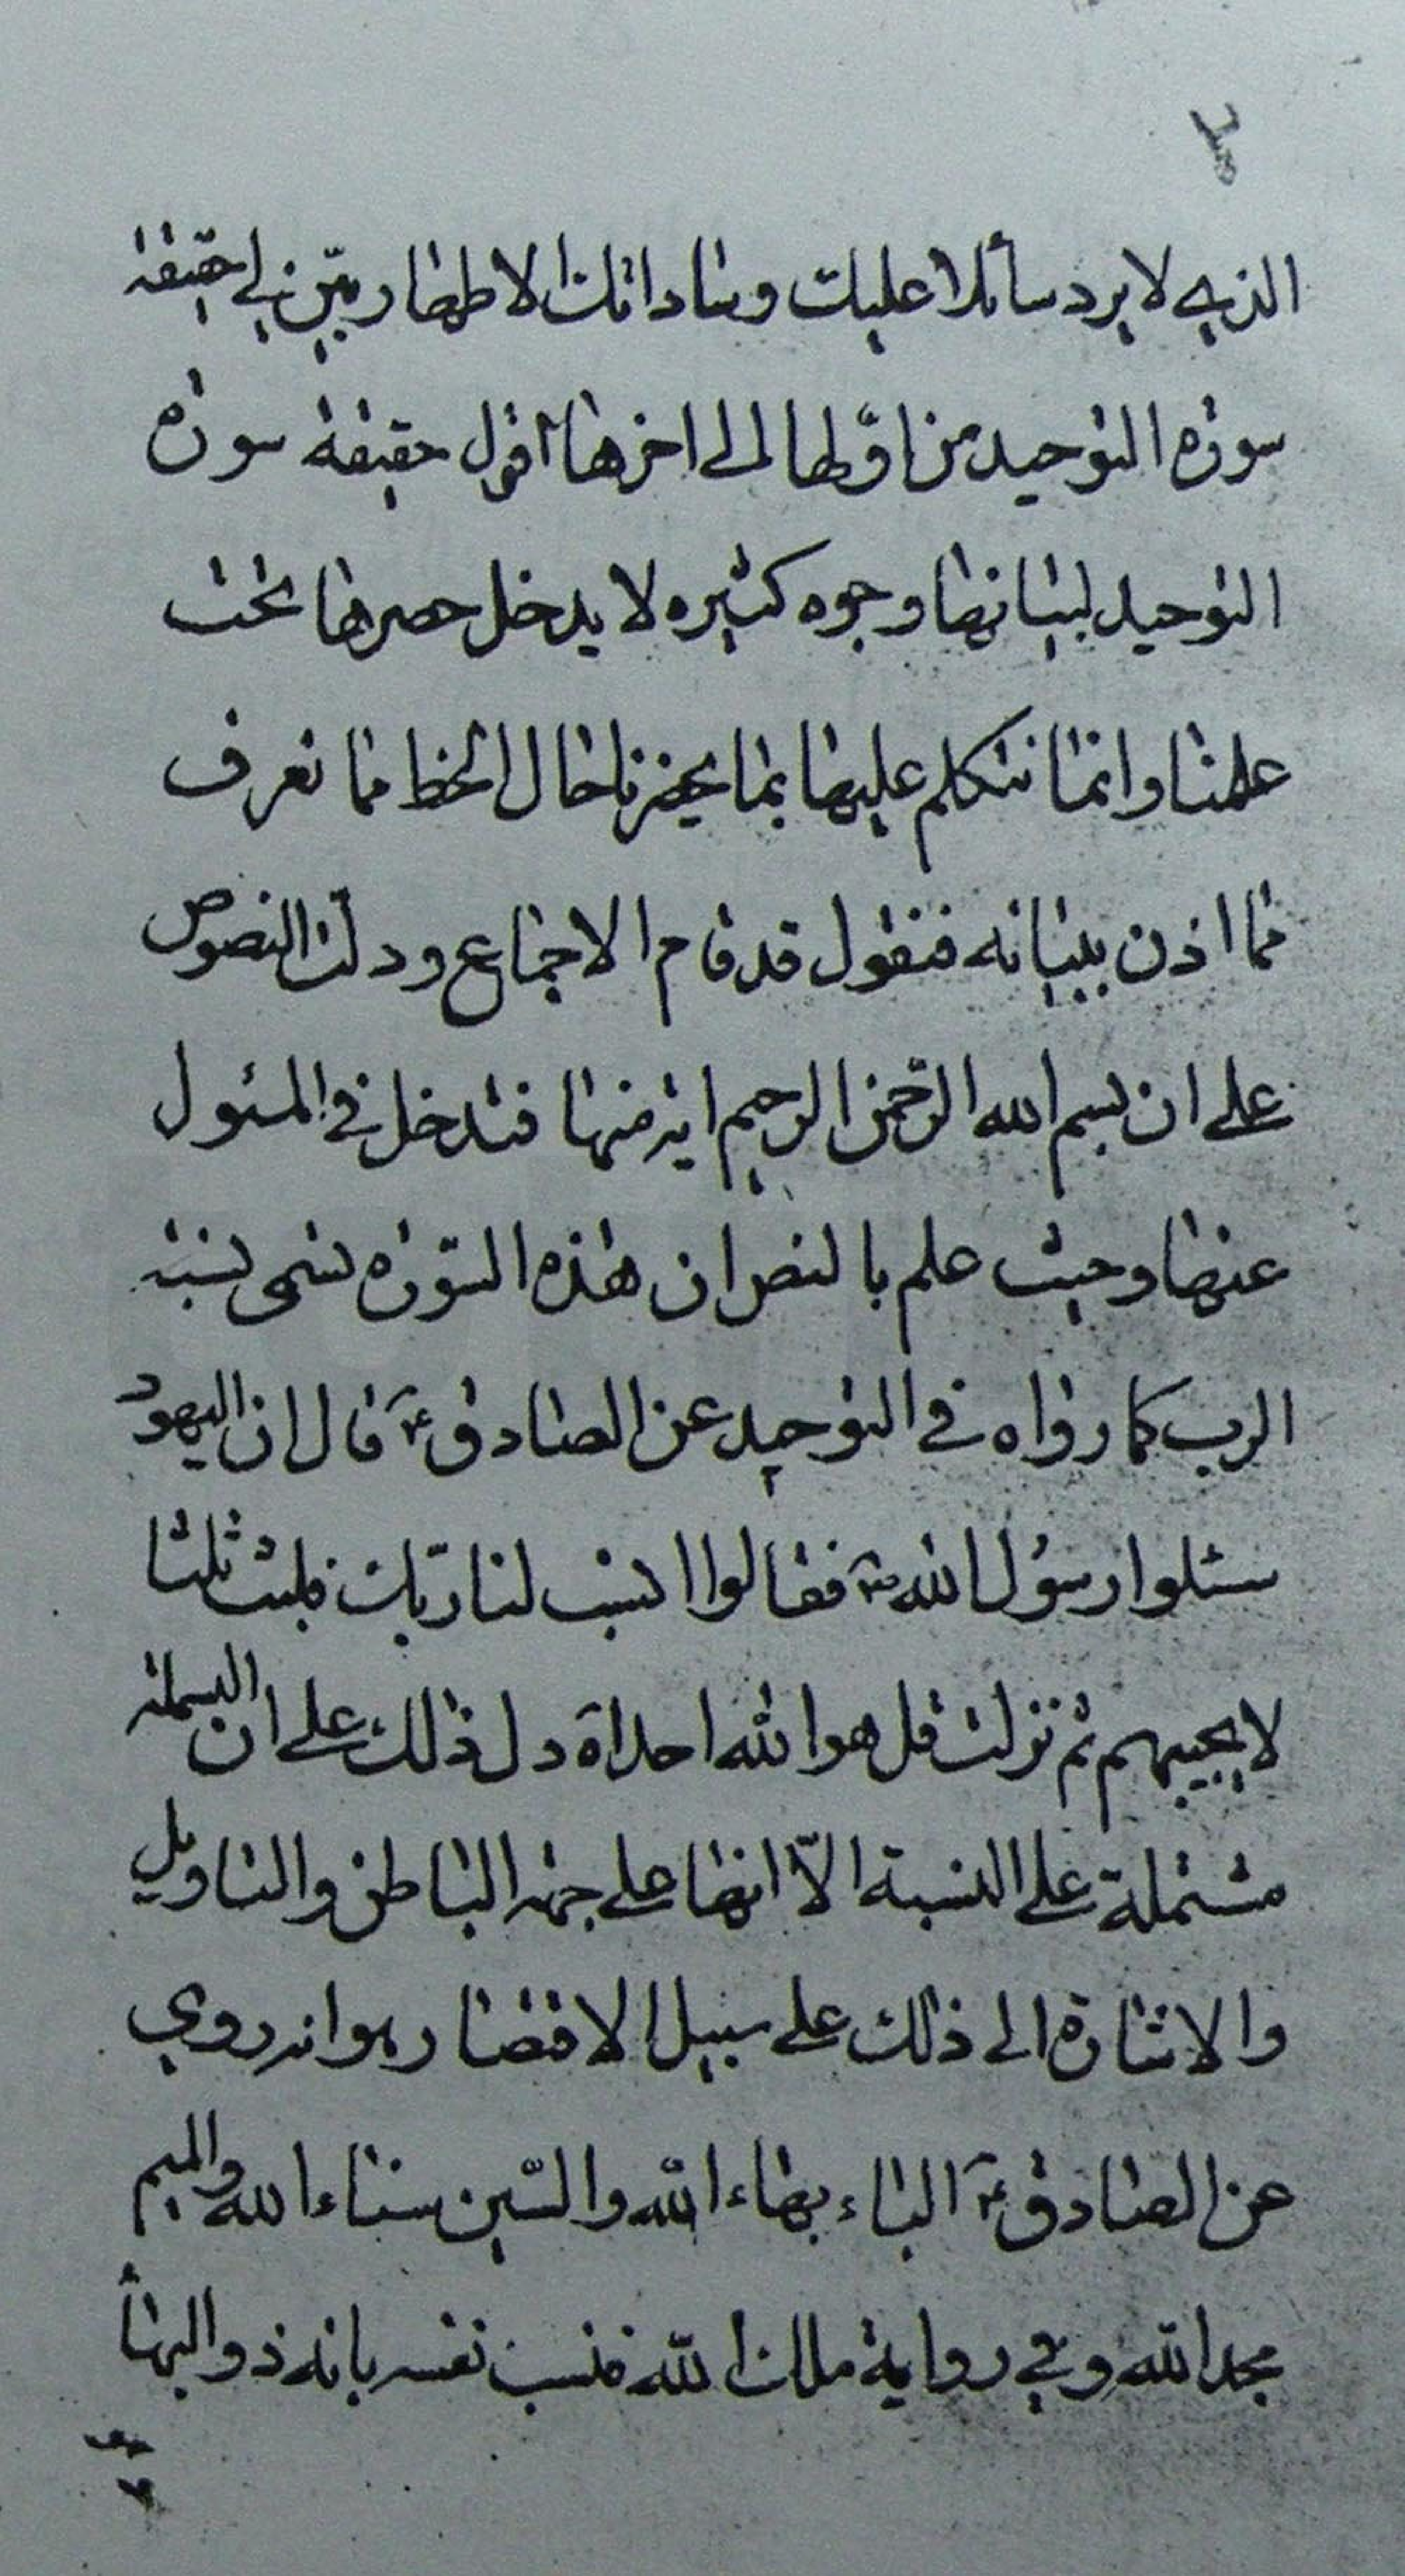 الذي لا يرد سائلا عليك وساداتك الاطهار بيّن لي حقيقة
سورة التوحيد من اوّلها الى اخرها اقول حقيقة سورة
التوحيد لبيانها وجوه كثيره لا يدخل حصرها تحت
علمنا وانما نتكلم عليها بما يحضرنا حال الخط مما نعرف
مما اذن ببيانه فنقول قد قام الاجماع ودلت النصوص
على ان بسم الله الرحمن الرحيم اية منها فتدخل في المسئول
عنها وحيث علم بالنص ان هذه السّورة تسمى نسبة
الرب كما رواه في التوحيد عن الصادق ع قال ان اليهود
سئلوا رسول الله ص فقالوا انسب لنا ربّك فلبث ثلثا
لا يجيبهم ثم نزلت قل هو الله احد اه دل ذلك على ان البسملة
مشتملة على النسبة الّا انها على جهة الباطن والتاويل
والاشارة الى ذلك على سبيل الاقتصار هو انه روي
عن الصادق ع الباء بهاء الله والسّين سناء الله والميم
مجد الله وفي رواية ملك الله فنسب نفسه بانه ذو البهاء